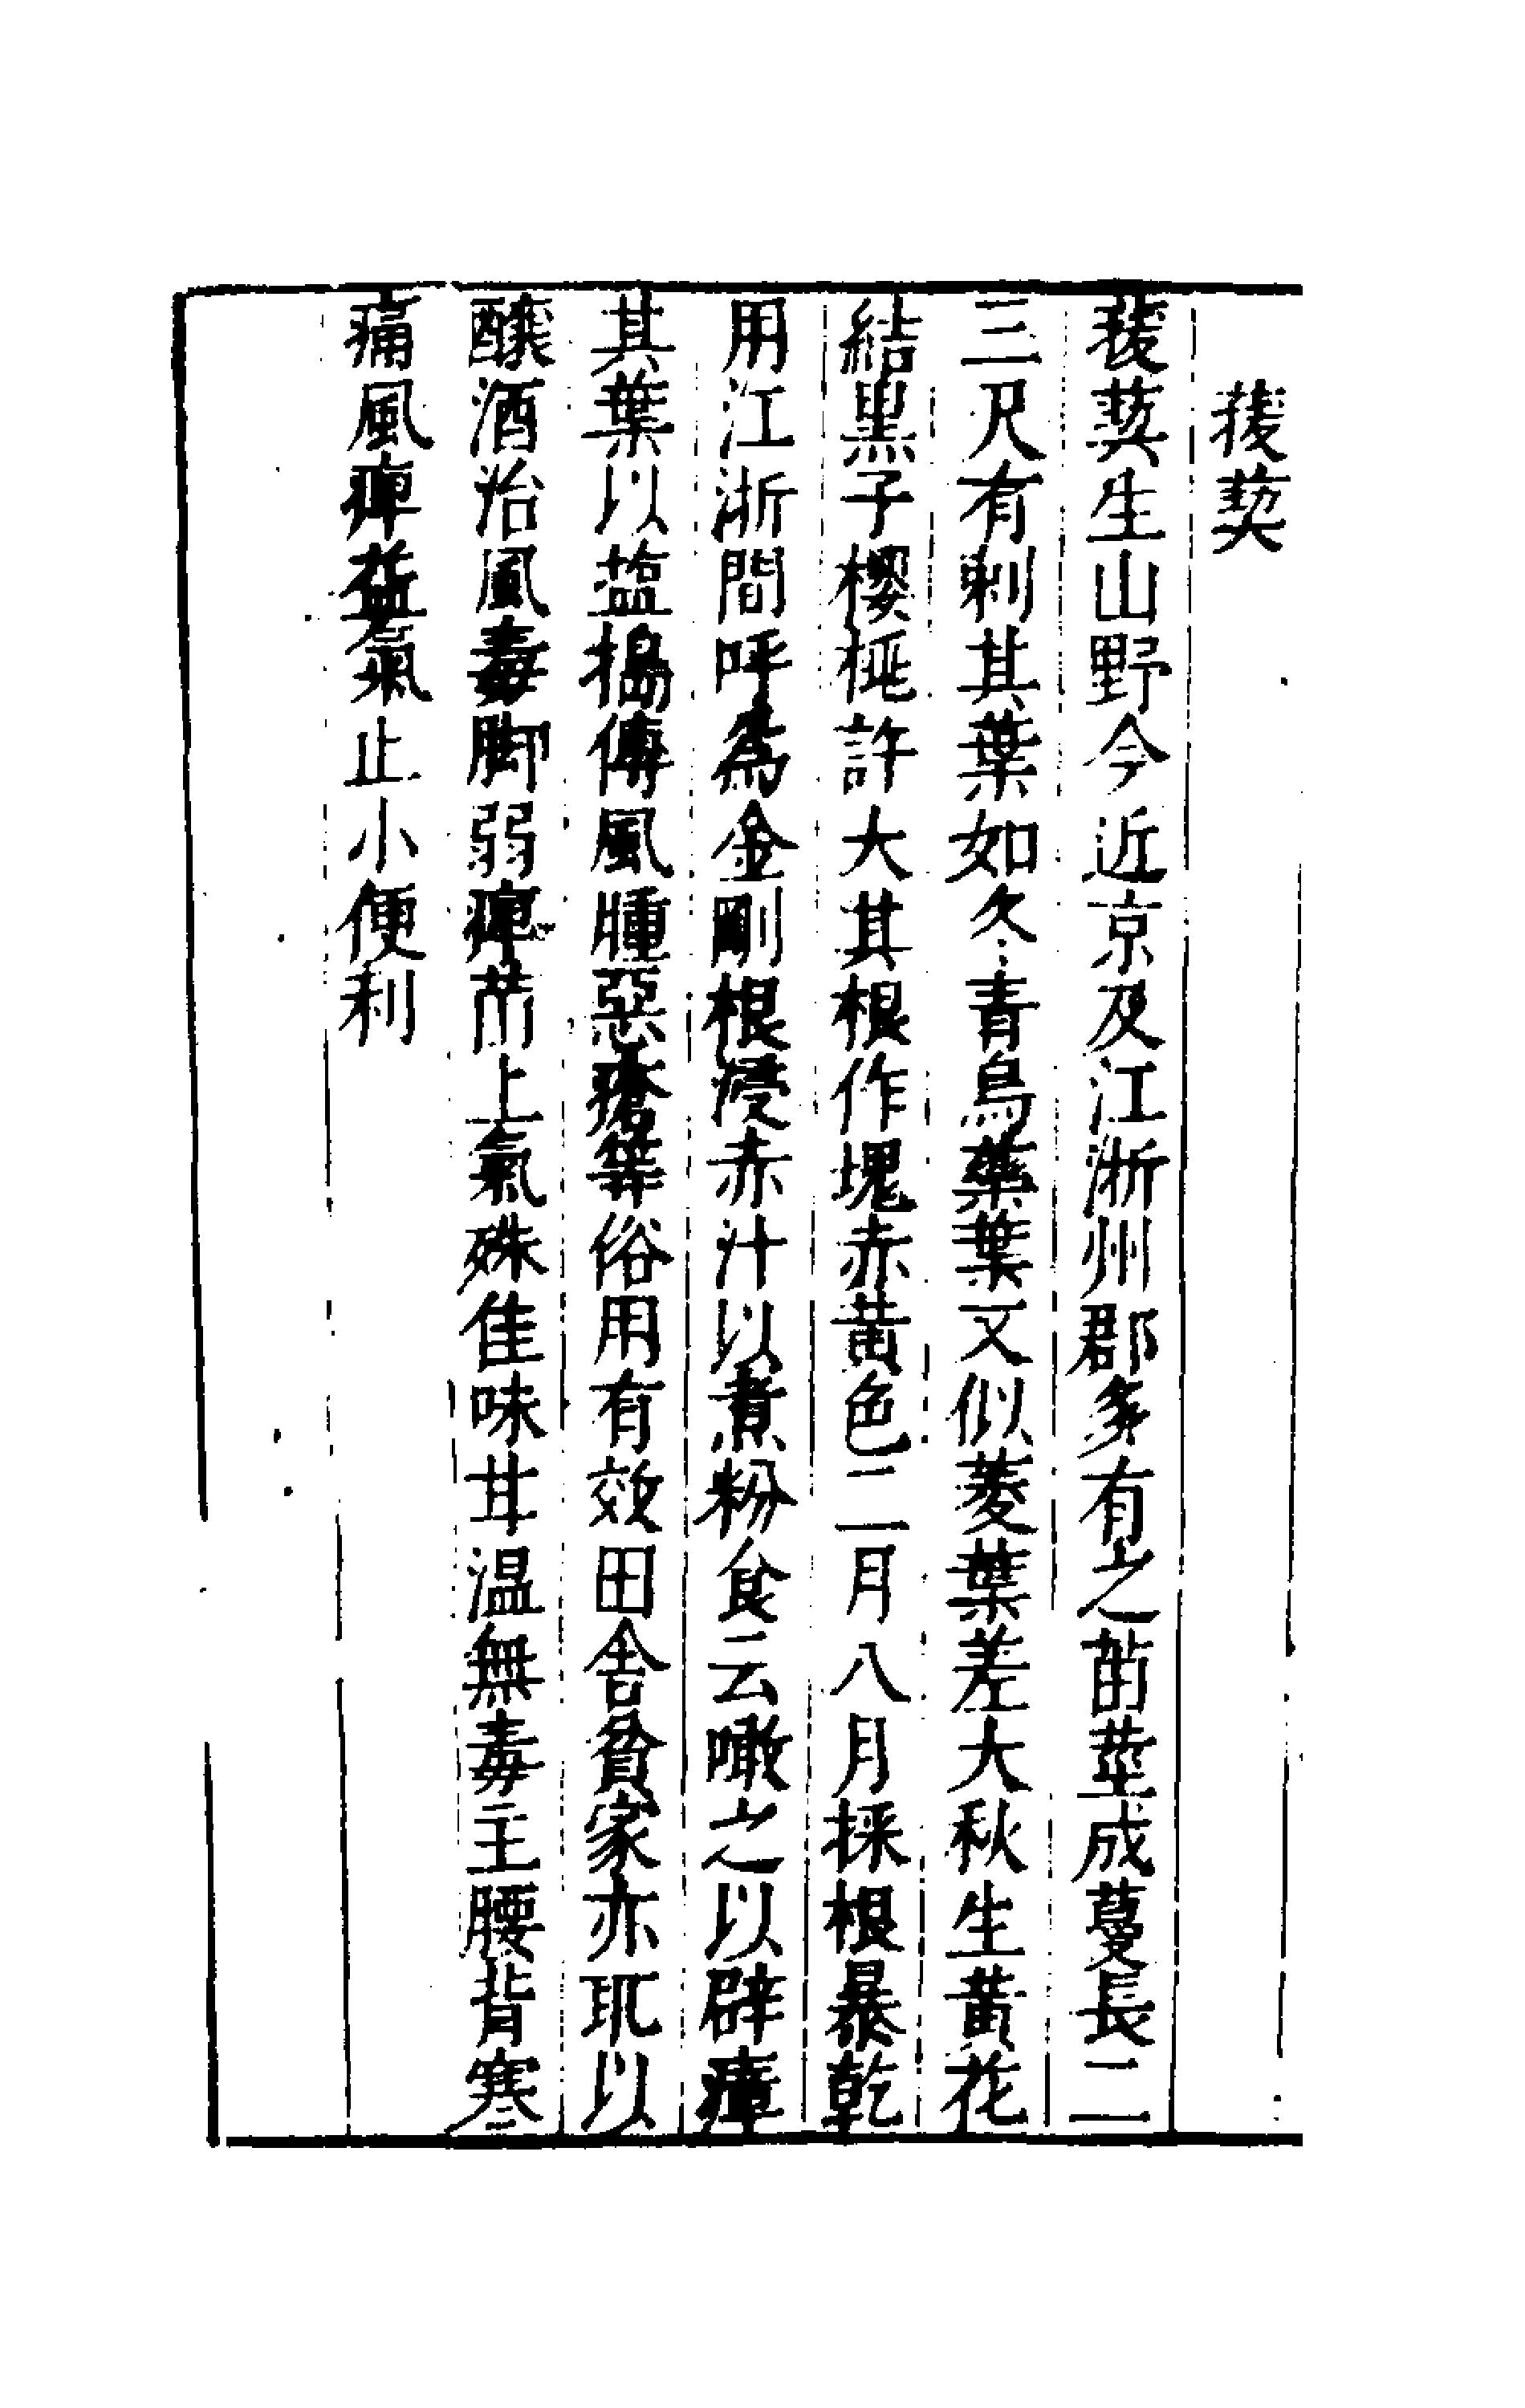 菝葜
菝葜生山野今近京及江浙州郡多有之苗莖成蔓長二
三尺有刺其葉如冬青烏藥葉又似菱葉差大秋生黃花
結黑子櫻桃許大其根作塊赤黃色二月八月採根暴乾
用江浙間呼為金剛根浸赤汁以煮粉食云噉之以辟瘴
其葉以盐搗傅風腫惡瘡等俗用有效田舍貧家亦取以
釀酒治風毒脚弱痺滿上氣殊佳味甘温無毒主腰背寒
痛風痺益氣止小便利